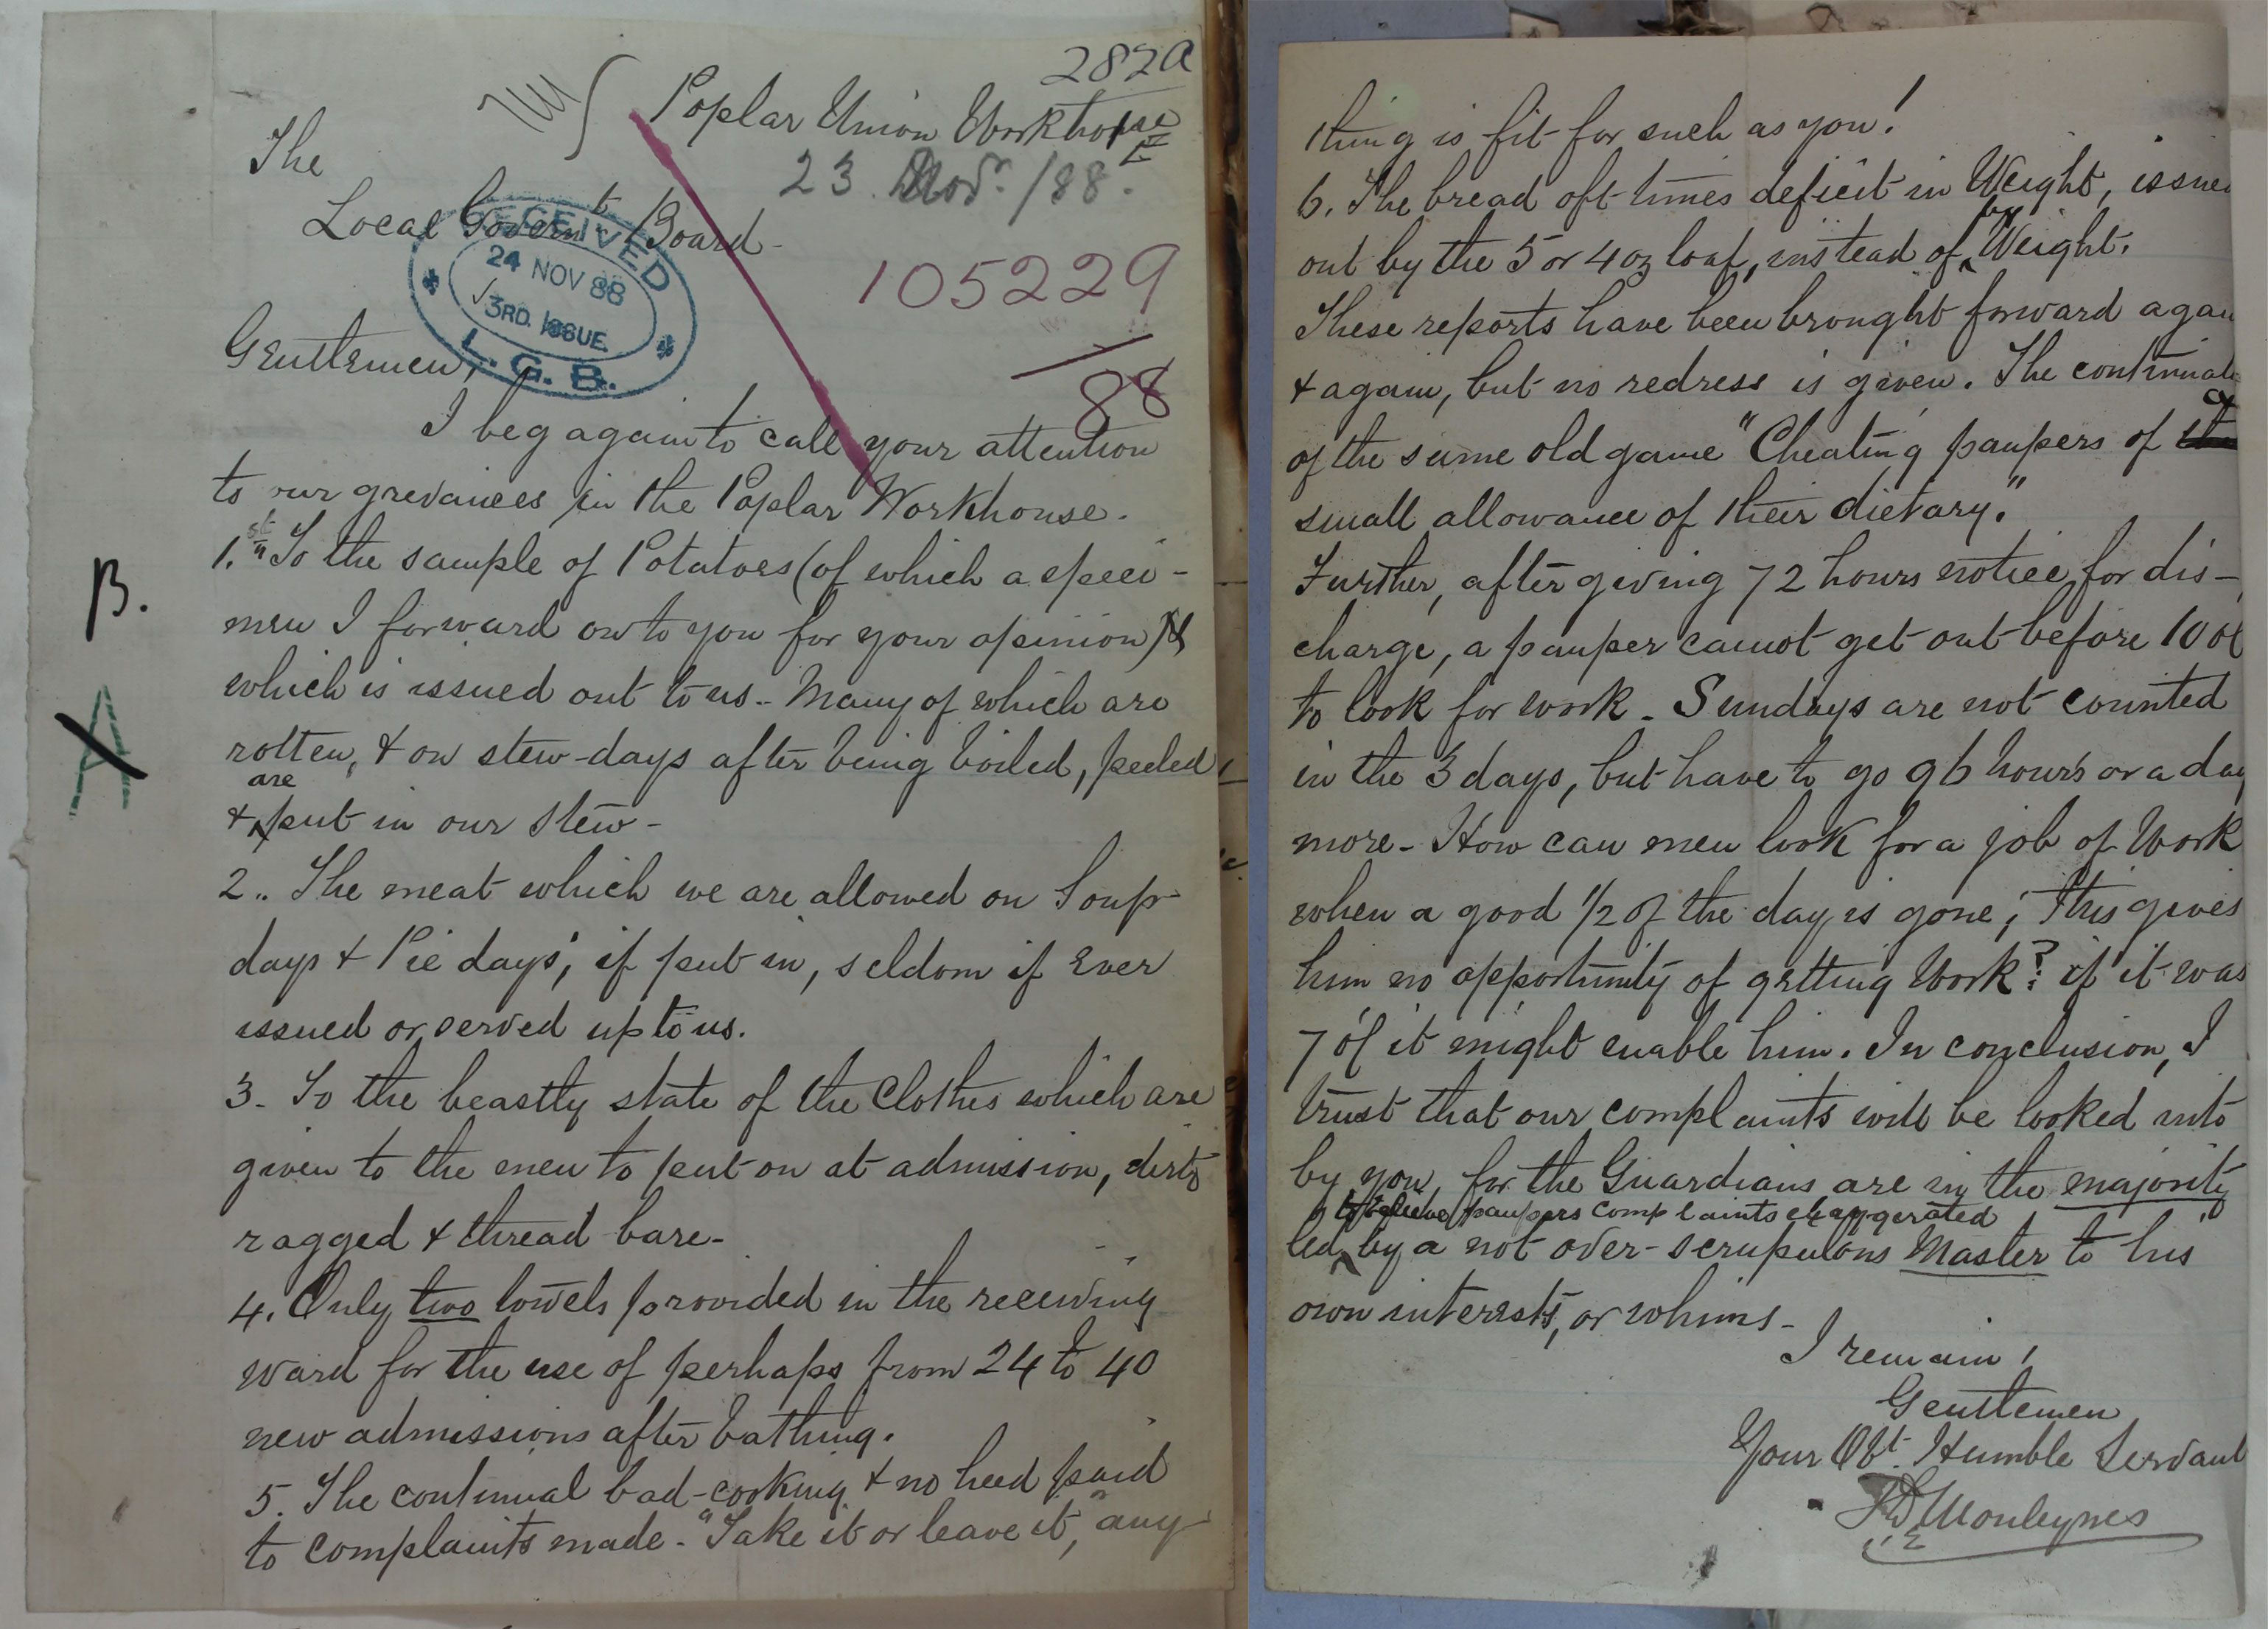 282A
Poplar Union Workhouse
E
23. Novr. /88.
The
Local Governt. Board
RECEIVED
24 NOV 88
3RD. ISSUE.
L. G. B.
105229
88
Gentlemen,
I beg again to call your attention
to our grevances in the Poplar Workhouse.
1.st To the sample of Potatoes (of which a speci-
B.
men I forward on to you for your opinion) &
which is issued out to us. - Many of which are
A
rotten, & on stew-days after being boiled, peeled,
& are put in our Stew -
2.. The meat which we are allowed on Soup
days & Pie days; if put in, seldom if Ever
issued or served up to us.
3 - To the beastly state of the Clothes which are
given to the men to put on at admission, dirty
ragged & thread bare -
4. Only two towels provided in the receiving
ward for the use of perhaps from 24 to 40
new admissions after bathing.
5. The continual bad-cooking & no heed paid
to complaints made - "Take it or leave it," any
thing is fit for such as you!
6. The bread oft times deficit in Weight, issued
out by the 5 or 4 oz loaf, instead of by Weight.
These reports have been brought forward again
& again, but no redress is given. The continual
of the same old game "Cheating paupers of a
small allowance of their dietary."
Further, after giving 72 hours notice for dis-
charge, a pauper cannot get out before 10 oC
to look for work - Sundays are not counted
in the 3 days, but have to go 96 hours or a day
more - How can men look for a job of Work
when a good 1/2 of the day is gone; this gives
him no opportunity of getting Work?: if it was
7 o'C it might enable him. In conclusion, I
trust that our complaints will be looked into
by you, for the Guardians are in the majority
led to believe paupers complaints exaggerated by a not over-scrupulous Master to his
own interests, or whims -
I remain!
Gentlemen
Your Obt. Humble Servant
Mouleynes